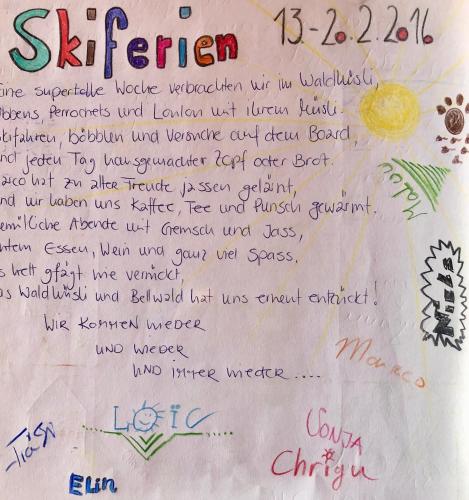 Skiferien 13.-20.2.2016
eine supertolle Woche verbrachten wir im Waldhüsli,
öbbens, Perrochets und Lonlon mit ihrem Müsli.
Skifahren, böbblen und Versuche auf dem Board,
und jeden Tag hausgemachter Zopf oder Brot.
Marco hat zu aller Freude jassen gelernt,
und wir haben uns Kaffee, Tee und Punsch gewärmt.
Gemütliche Abende mit Gemsch und Jass,
gutem Essen, Wein und ganz viel Spass.
es hett gfägt wie verrückt,
das Waldhüsli und Bellwald hat uns erneut entzückt!
WIR KOMMEN WIEDER
UND WIEDER
UND IMMER WIEDER....
Malou
Niels
Marco
LOÏC
SONJA
Chrigu
Elin